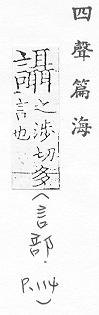 四聲篇海
讘之涉切多言也(言部.P.114)